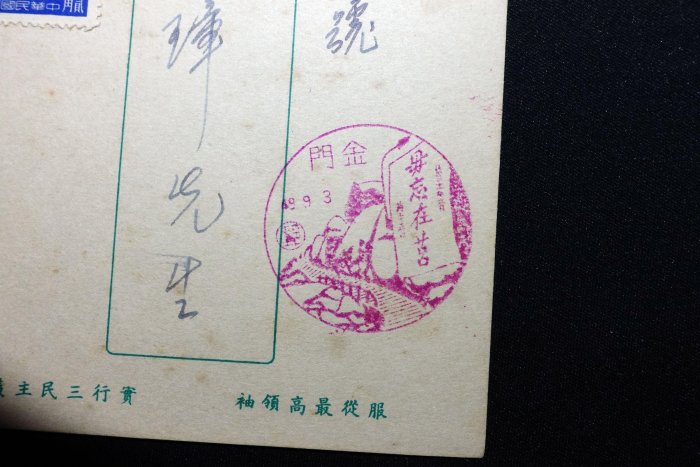 中華民國
號
璋先生
金門
9.3
毋忘在莒
服從最高領袖
實行三民主